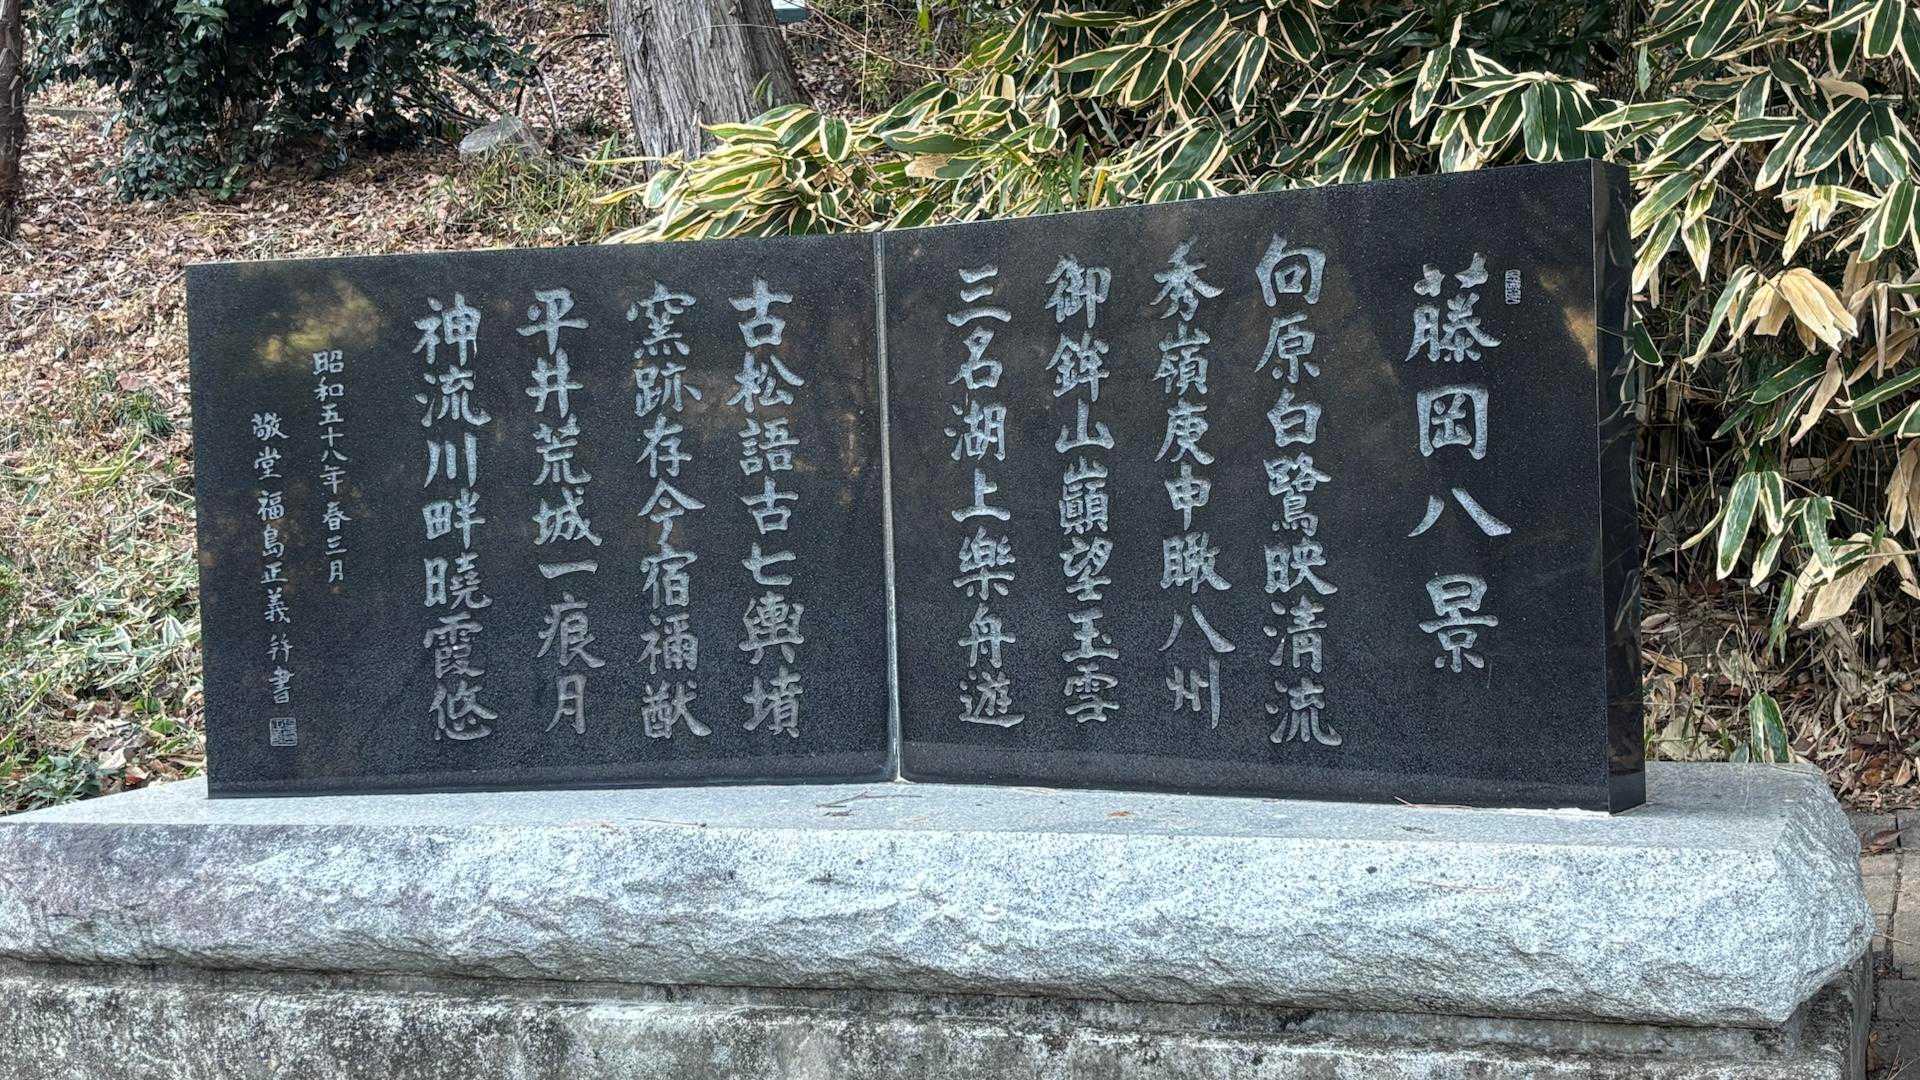 藤岡八景
向原白鷺映清流
秀嶺庚申瞰八州
御鉾山巓望玉雪
三名湖上樂舟遊
古松語古七輿墳
窯跡存今宿禰猷
平井荒城一痕月
神流川畔曉霞悠
昭和五十八年春三月
敬堂福島正義并書